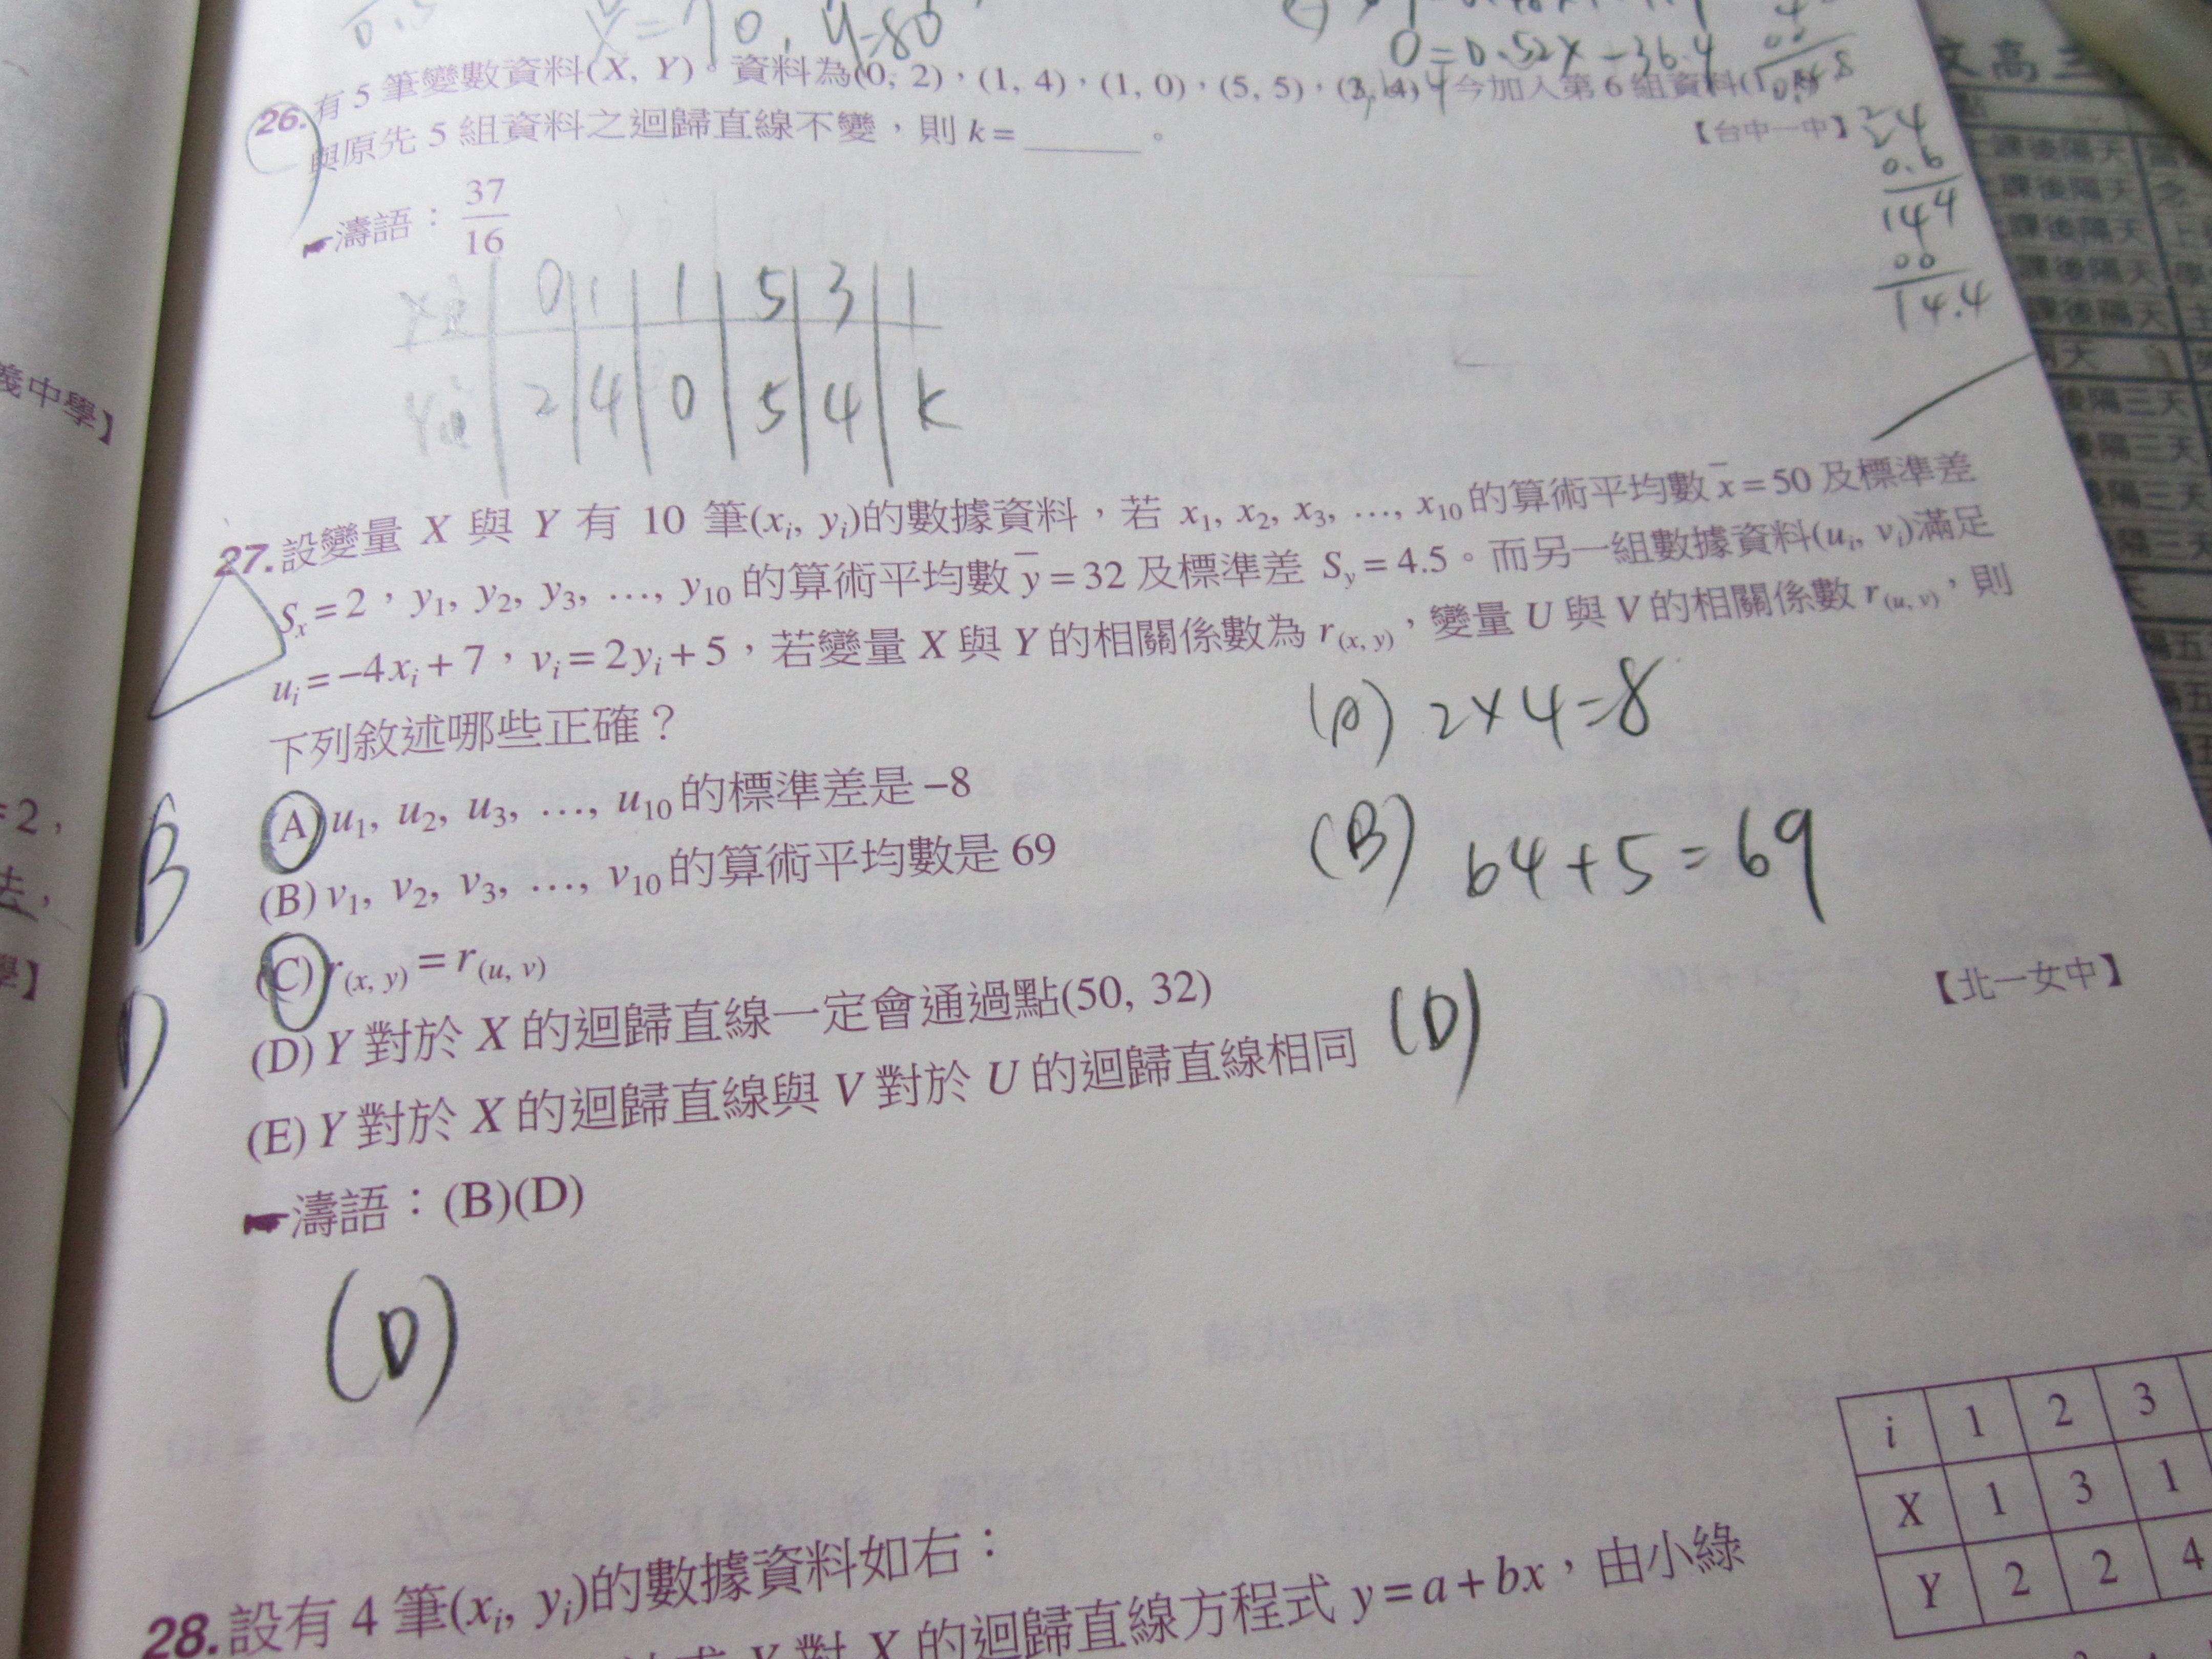 x̄=70, y=80
0=0.52x-36.4
26.有 5 筆變數資料(X, Y)。資料為(0, 2),(1, 4),(1, 0),(5, 5),(3, 4),今加入第 6 組資料(1,
與原先 5 組資料之迴歸直線不變,則 k=______。
【台中一中】
24
0.6
144
00
14.4
☛濤語:37/16
Xi 0 1 1 5 3 1
Yi 2 4 0 5 4 k
27.設變量 X 與 Y 有 10 筆(xi, yi)的數據資料,若 x1, x2, x3, …, x10的算術平均數 x̄=50 及標準差
Sx=2,y1, y2, y3, …, y10 的算術平均數 ȳ=32 及標準差 Sy=4.5。而另一組數據資料(ui, vi)滿足
ui=-4xi+7,vi=2yi+5,若變量 X 與 Y 的相關係數為 r(x, y),變量 U 與 V 的相關係數 r(u, v),則
下列敘述哪些正確?
(A) 2×4=8
(A) u1, u2, u3, …, u10的標準差是-8
B
(B) v1, v2, v3, …, v10的算術平均數是 69
(B) 64+5=69
(C) r(x, y)=r(u, v)
【北一女中】
D
(D) Y 對於 X 的迴歸直線一定會通過點(50, 32)
(D)
(E) Y 對於 X 的迴歸直線與 V 對於 U 的迴歸直線相同
☛濤語:(B)(D)
(D)
28.設有 4 筆(xi, yi)的數據資料如右:
Y 對 X 的迴歸直線方程式 y=a+bx,由小綠
i 1 2 3
X 1 3 1
Y 2 2 4
義中學】
=2,
去,
學】
文高三